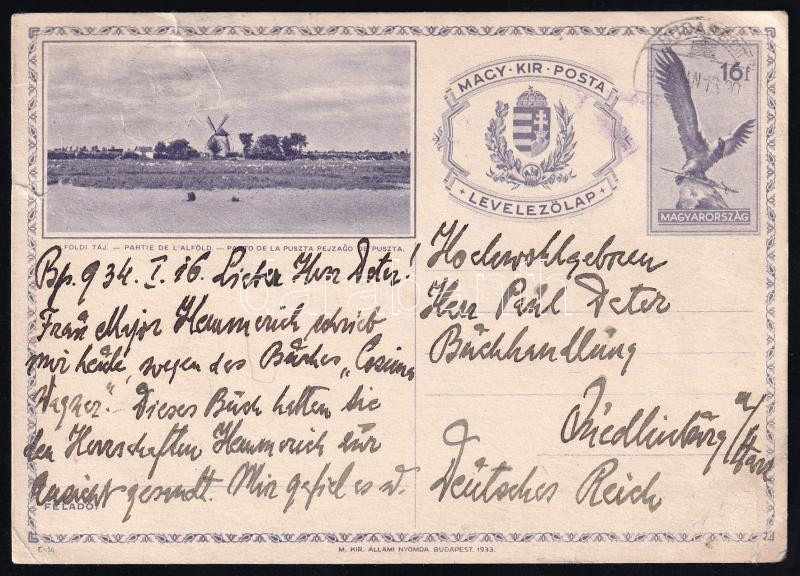 MAGY · KIR · POSTA
LEVELEZŐLAP
16f
MAGYARORSZÁG
ALFÖLDI TÁJ. — PARTIE DE L'ALFÖLD. — PARTO DE LA PUSZTA PEJZAĜO DE PUSZTA.
Bp. 934. I. 16. Lieber Herr Deter!
Frau Major Hemmerich schrieb
mir heute, wegen des Buches „Cosima
Wagner“. Dieses Buch hatten Sie
den Herrschaften Hemmerich zur
Ansicht gesandt. Mir gefiel es u.
FELADÓ:
Hochwohlgeboren
Herr Paul Deter
Buchhandlung
Quedlinburg a/Harz
Deutsches Reich
darabanth
E-16
M. KIR. ÁLLAMI NYOMDA. BUDAPEST. 1933.